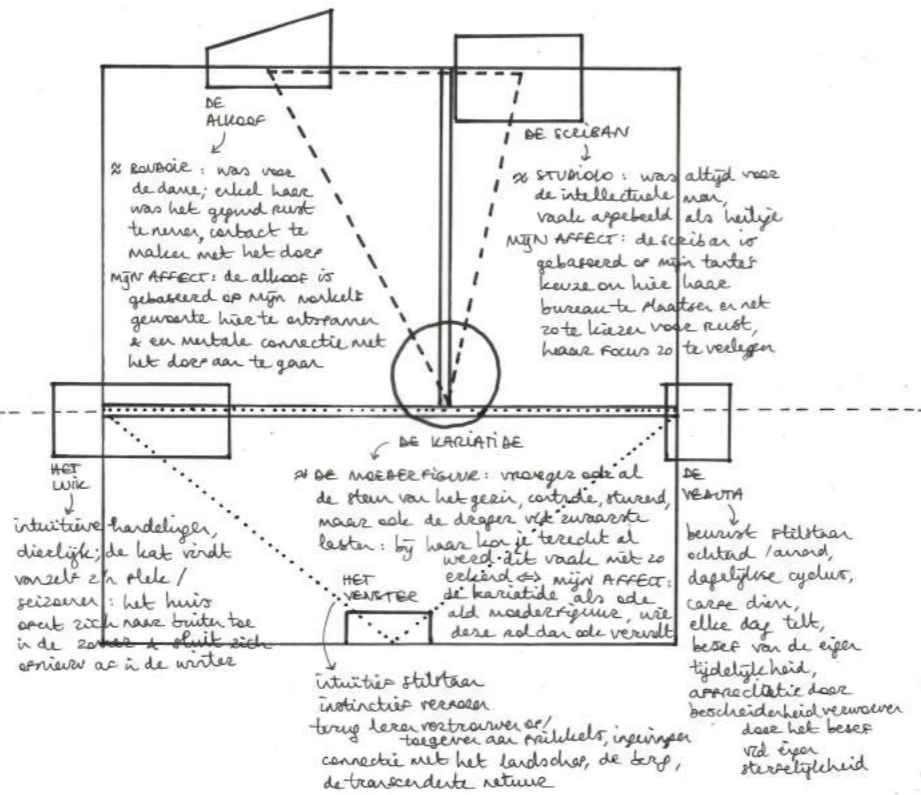 DE
ALKOOF
≈ BOUDOIR : was voor
de dame; enkel haar
was het gegund rust
te nemen, contact te
maken met het dorp
MIJN AFFECT : de alkoof is
gebaseerd op mijn nonkels
gewoonte hier te ontspannen
& een mentale connectie met
het dorp aan te gaan
DE SCRIBAN
≈ STUDIOLO : was altijd voor
de intellectuele man,
vaak afgebeeld als heilige
MIJN AFFECT : de scriban is
gebaseerd op mijn tante's
keuze om hier haar
bureau te plaatsen en net
zo te kiezen voor rust,
haar focus zo te verleggen
DE KARIATIDE
≈ DE MOEDERFIGUUR : vroeger ook al
de stem van het gezin, controle, sturend,
maar ook de drager v/d zwaarste
lasten : bij haar kon je terecht al
werd dit vaak niet zo
erkend <=> MIJN AFFECT :
de kariatide als ode
a/d moederfiguur, wie
deze rol dan ook vervult
HET
LUIK
intuïtieve handelingen,
dierlijk; de kat vindt
vanzelf z'n plek /
seizoenen : het huis
opent zich naar buiten toe
in de zomer & sluit zich
opnieuw af in de winter
HET
VENSTER
intuïtief stilstaan
instinctief verzoeken
terug leren vertrouwen op /
toegeven aan prikkels, ingevingen
connectie met het landschap, de berg,
de transcendente natuur
DE
VEDUTA
bewust stilstaan
ochtend / avond,
dagelijkse cyclus,
carpe diem,
elke dag telt,
besef van de eigen
tijdelijkheid,
appreciatie door
bescheidenheid verworven
door het besef
v/d eigen
sterfelijkheid